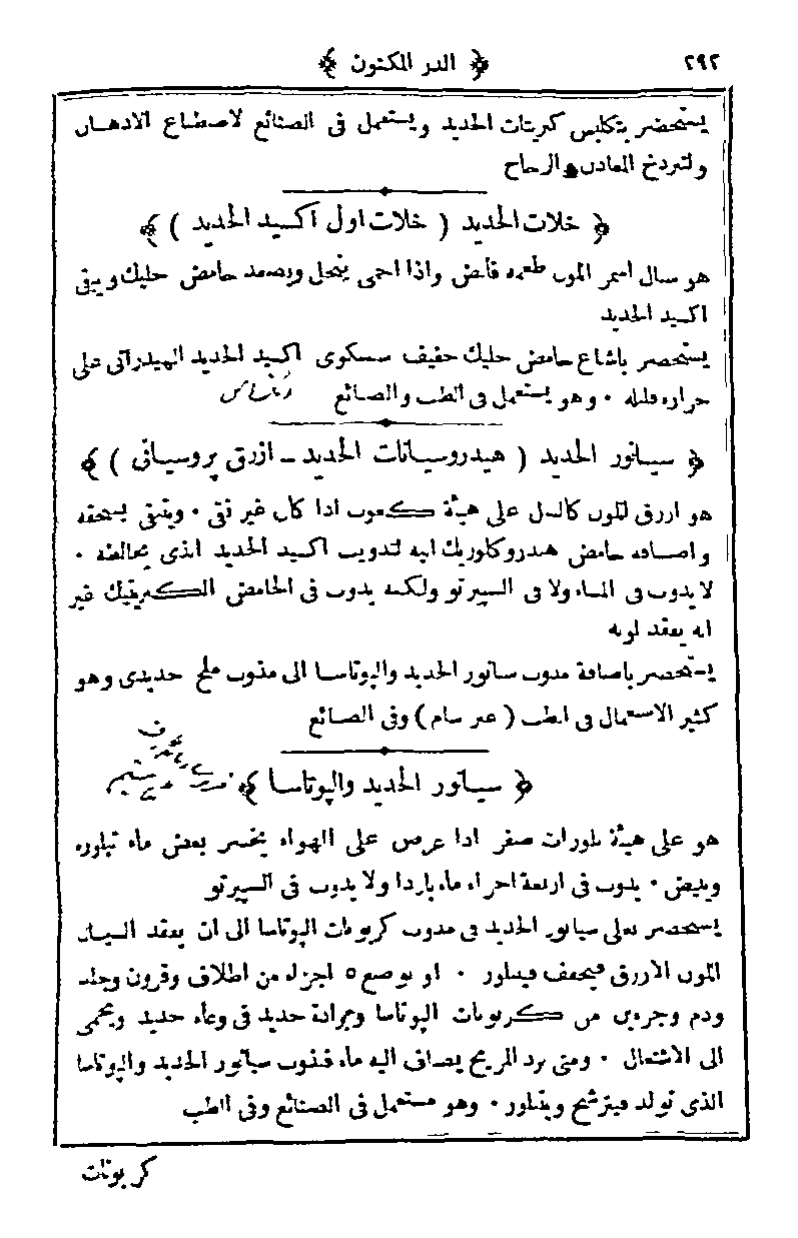 ٢٩٢
﴿ الدر المكنون ﴾
يستحضر بتكليس كبريتات الحديد ويستعمل فى الصنائع لاصطناع الادهان
ولتردخ المعادن والزجاج
﴿ خلات الحديد ( خلات اول اكسيد الحديد ) ﴾
هو سيال اسمر اللون طعمه قابض واذا احمى ينحل ويصعد حامض خليك ويبقى
اكسيد الحديد
يستحضر باشباع حامض خليك خفيف مسكوى اكسيد الحديد الهيدراتى على
حرارة قليلة ٠ وهو يستعمل فى الطب والصنائع
﴿ سيانور الحديد ( هيدروسيانات الحديد ــ ازرق پروسيانى ) ﴾
هو ازرق اللون كالنيل على هيئة كعوب اذا كان غير نقى ٠ وينقى بسحقه
واضافة حامض هيدروكلوريك اليه لتذويب اكسيد الحديد الذى يخالطه ٠
لا يذوب فى الماء ولا فى السبيرتو ولكنه يذوب فى الحامض الكبريتيك غير
انه يفقد لونه
يستحضر باضافة مذوب سيانور الحديد والپوتاسا الى مذوب ملح حديدى وهو
كثير الاستعمال فى الطب ( غير سام ) وفى الصنائع
﴿ سيانور الحديد والپوتاسا ﴾
هو على هيئة بلورات صفر اذا عرض على الهواء يخسر بعض ماء تبلوره
ويبيض ٠ يذوب فى اربعة اجزاء ماء باردا ولا يذوب فى السبيرتو
يستحضر بغلى سيانور الحديد فى مذوب كربونات الپوتاسا الى ان يفقد السيال
اللون الازرق فيجفف فيبلور ٠ او يوضع ٥ اجزاء من اظلاف وقرون وجلد
ودم وجزءين من كربونات الپوتاسا وبرادة حديد فى وعاء حديد ويحمى
الى الاشتعال ٠ ومتى برد المزيج يضاف اليه ماء فيذوب سيانور الحديد والپوتاسا
الذى تولد فيترشح ويتبلور ٠ وهو مستعمل فى الصنائع وفى الطب
كربونات